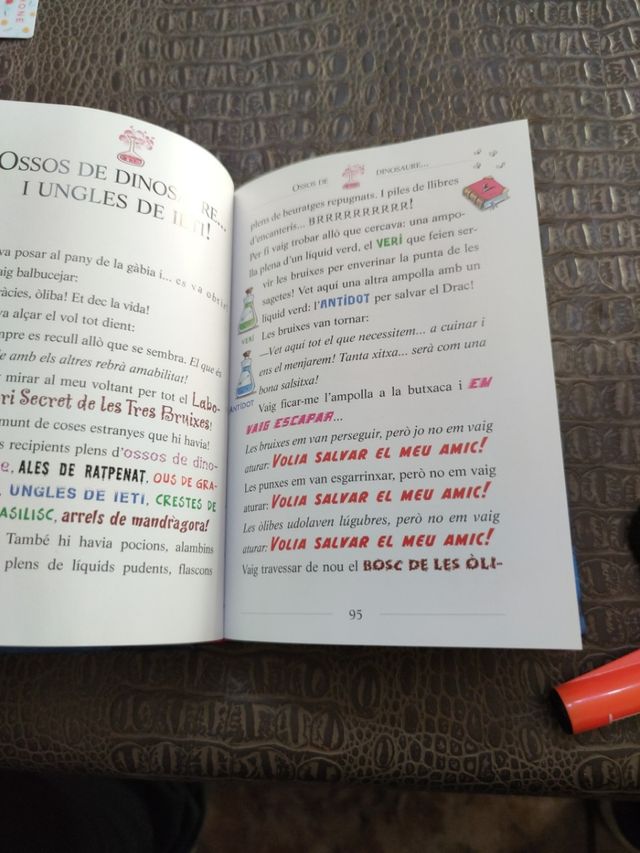 ONE
OSSOS DE DINOSAURE...
I UNGLES DE IETI!
va posar al pany de la gàbia i... es va obrir!
balbucejar:
òliba! Et dec la vida!
va alçar el vol tot dient:
es recull allò que se sembra. El que és
amb els altres rebrà amabilitat!
mirar al meu voltant per tot el Labo-
ri Secret de les Tres Bruixes!
munt de coses estranyes que hi havia!
recipients plens d'ossos de dino-
ALES DE RATPENAT, OUS DE GRA-
UNGLES DE IETI, CRESTES DE
arrels de mandràgora!
També hi havia pocions, alambins
plens de líquids pudents, flascons
OSSOS DE DINOSAURE...
plens de beuratges repugnats. I piles de llibres
d'encanteris... BRRRRRRRRRRR!
Per fi vaig trobar allò que cercava: una ampo-
lla plena d'un líquid verd, el VERÍ que feien ser-
vir les bruixes per enverinar la punta de les
sagetes! Vet aquí una altra ampolla amb un
líquid verd: l'ANTÍDOT per salvar el Drac!
Les bruixes van tornar:
—Vet aquí tot el que necessitem... a cuinar i
ens el menjarem! Tanta xitxa... serà com una
bona salsitxa!
Vaig ficar-me l'ampolla a la butxaca i EM
VAIG ESCAPAR...
Les bruixes em van perseguir, però jo no em vaig
aturar: VOLIA SALVAR EL MEU AMIC!
Les punxes em van esgarrinxar, però no em vaig
aturar: VOLIA SALVAR EL MEU AMIC!
Les òlibes udolaven lúgubres, però no em vaig
aturar: VOLIA SALVAR EL MEU AMIC!
Vaig travessar de nou el BOSC DE LES ÒLI-
VERÍ
ANTÍDOT
95